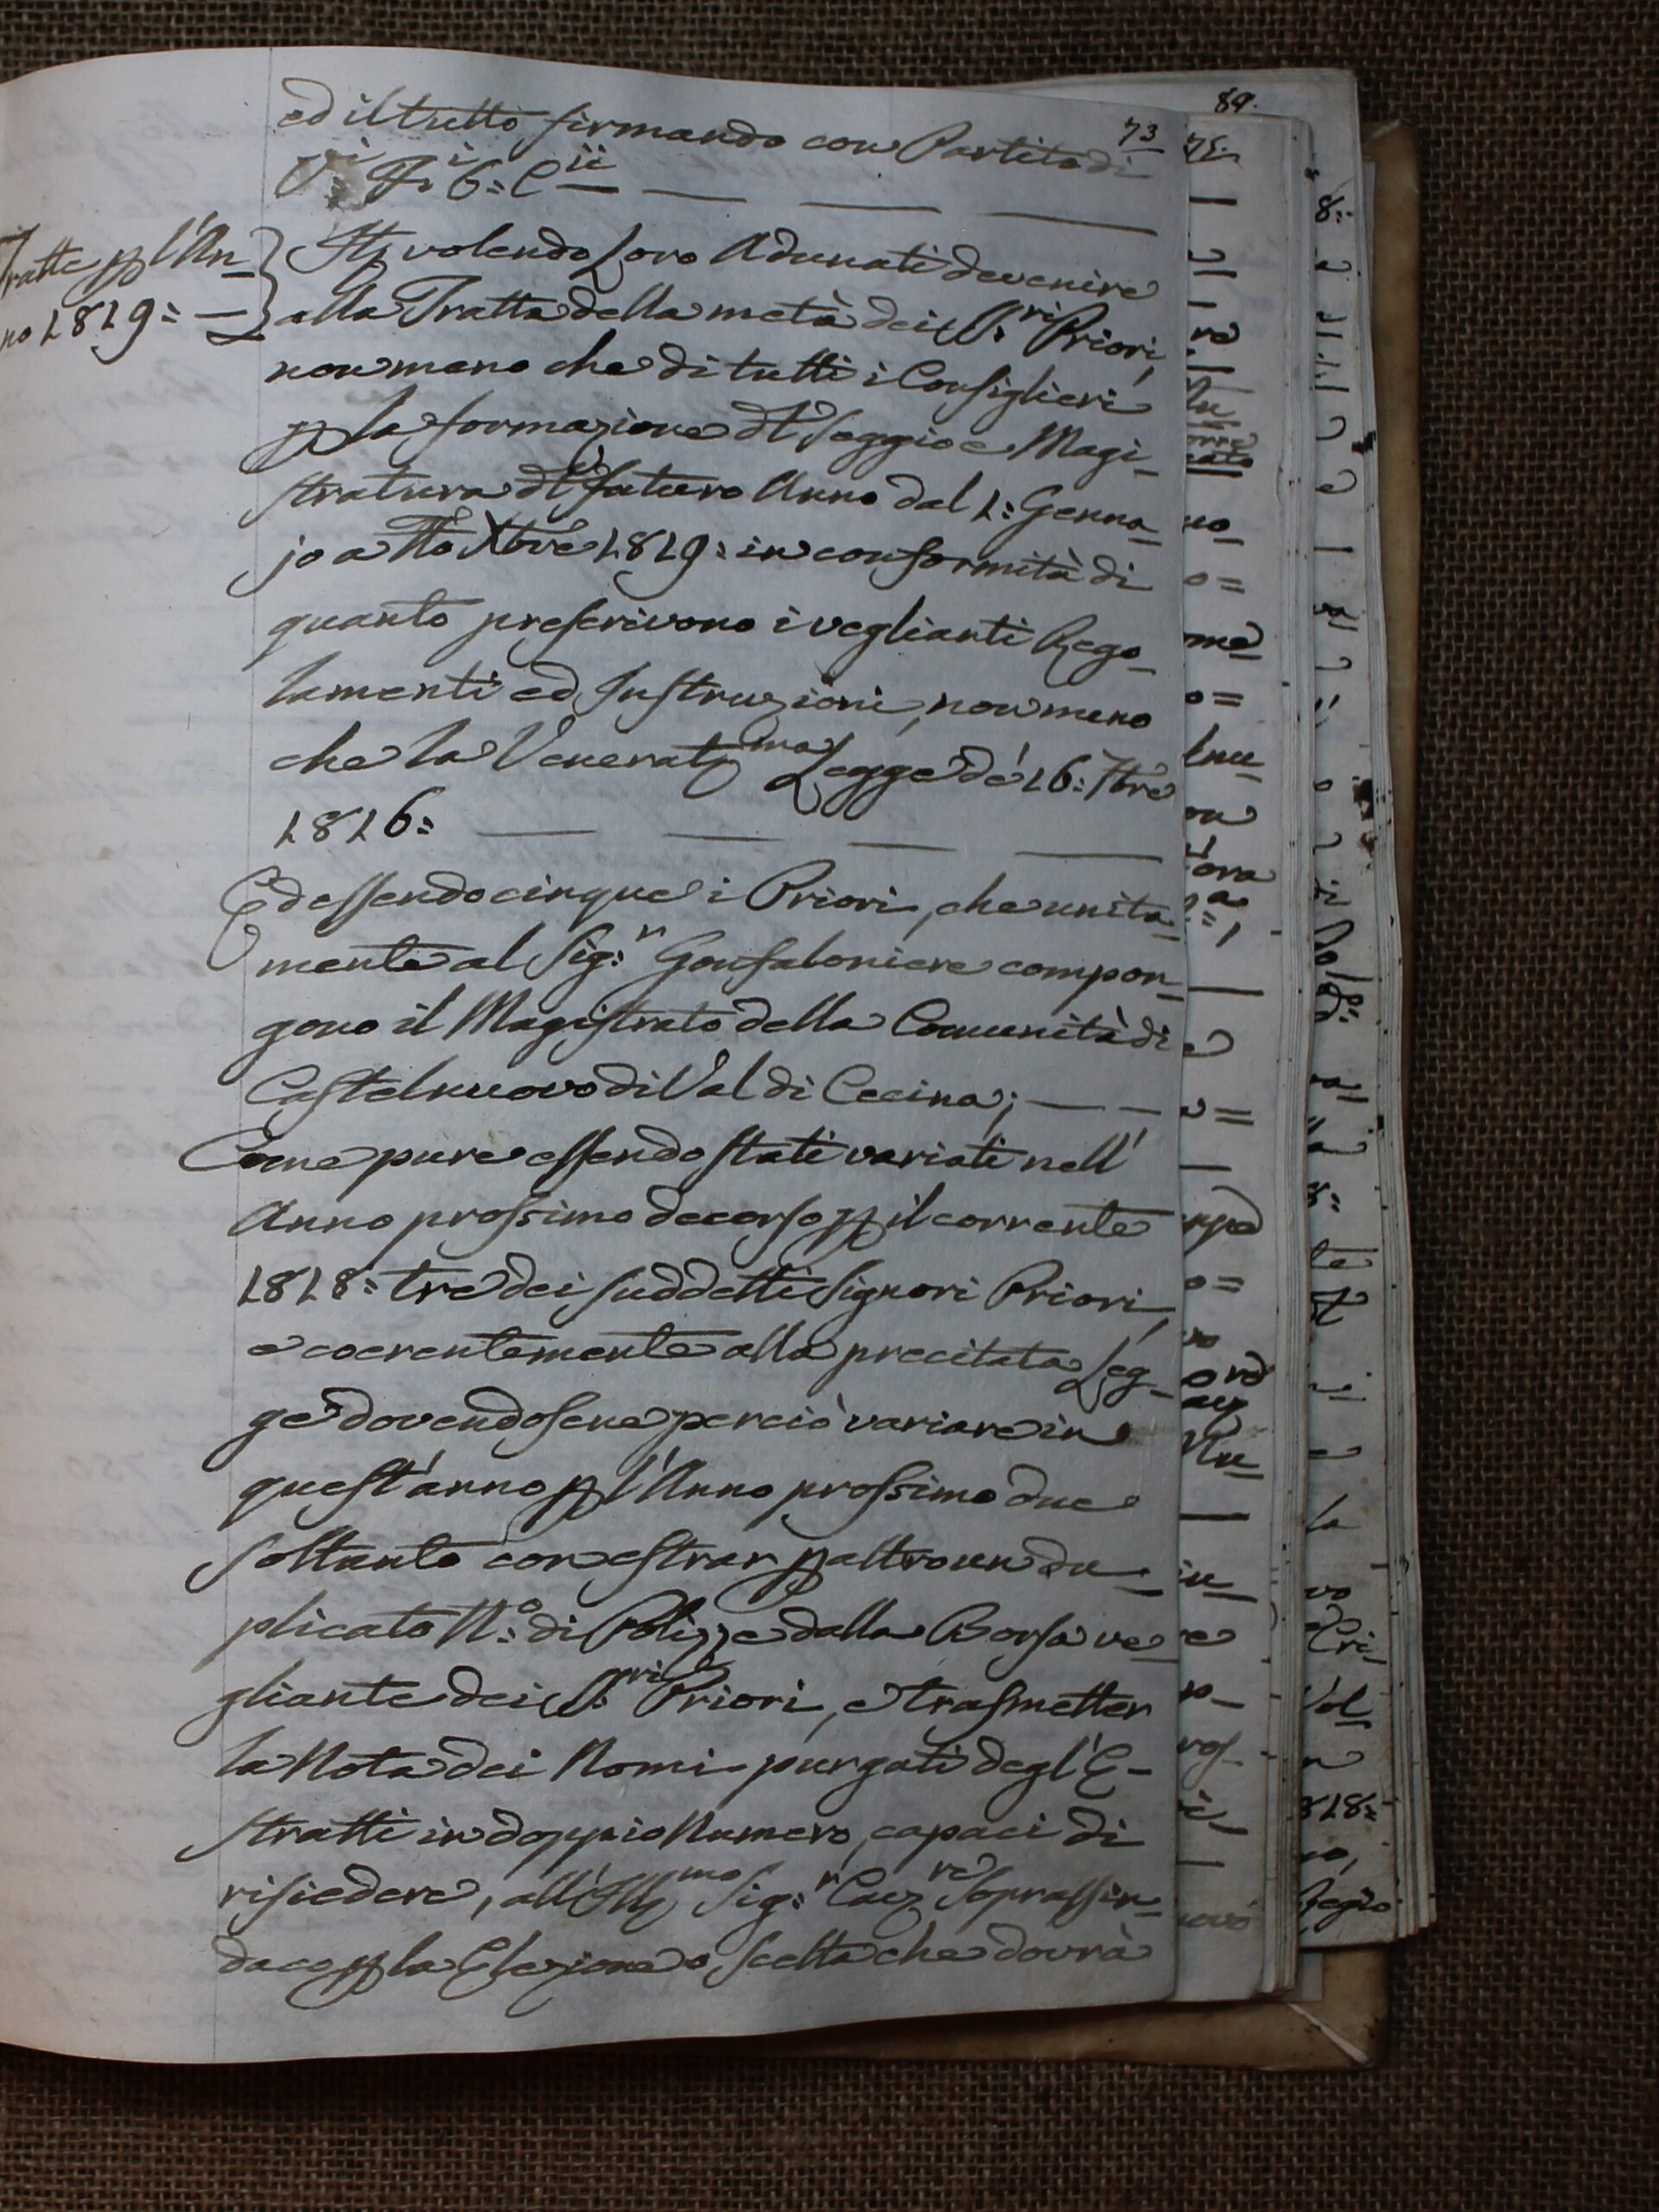 73
ed il tutto firmando con Partito di
Vi: Fi: 6: Cii
Tratte p l'An_
no 1819: —
Itp volendo Loro Adunati devenire
alla Tratta della metà dei SS:ri Priori,
non meno che di tutti i Consiglieri
p la formazione dl Seggio e Magi_
stratura dl futuro Anno dal 1: Genna_
jo a tto Xbre 1819: in conformità di
quanto prescrivono i veglianti Rego_
lamenti ed Instruzioni, non meno
che la Veneratma Legge de' 16: 7bre
1816:
Ed essendo cinque i Priori, che unita_
mente al Sig:r Gonfaloniere compon_
gono il Magistrato della Comunità di
Castelnuovo di Val di Cecina; — —
Come pure essendo stati variati nell'
Anno prossimo decorso p il corrente
1818: tre dei suddetti Signori Priori,
e coerentemente alla precitata Leg_
ge dovendosene perciò variare in
quest'anno p l'Anno prossimo due
soltanto con estrar p altro un du_
plicato N:o di Polizze dalla Borsa ve_
gliante dei SS:ri Priori, e trasmetter
la Nota dei Nomi purgati degl'E_
stratti in doppio Numero, capaci di
risiedere, all'Illmo Sig:r Cavre Soprassin_
daco p la Elezione o Scelta che dovrà
75:
89.